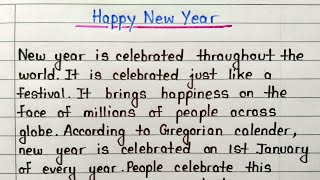 Happy New Year
New year is celebrated throughout the
world. It is celebrated just like a
festival. It brings happiness on the
face of millions of people across
globe. According to Gregorian calender,
new year is celebrated on 1st January
of every year. People celebrate this